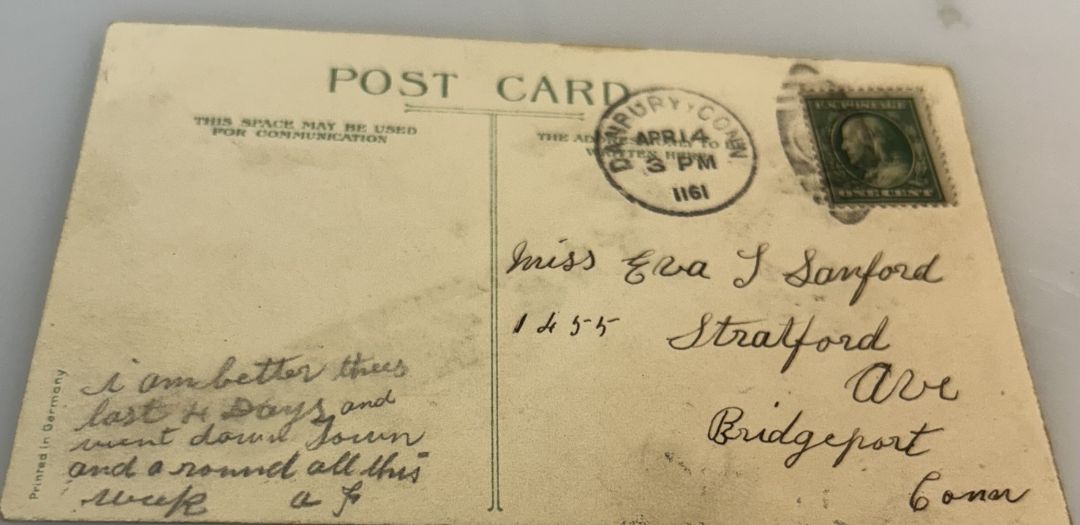 POST CARD
THIS SPACE MAY BE USED
FOR COMMUNICATION
THE AD
TO BE
DANBURY, CONN
APR 14
3 PM
1161
U.S. POSTAGE
ONE CENT
Miss Eva T Sanford
1455 Stratford
Ave
Bridgeport
Conn
i am better thees
last 4 Days and
went down Town
and a round all this
week a F
Printed in Germany